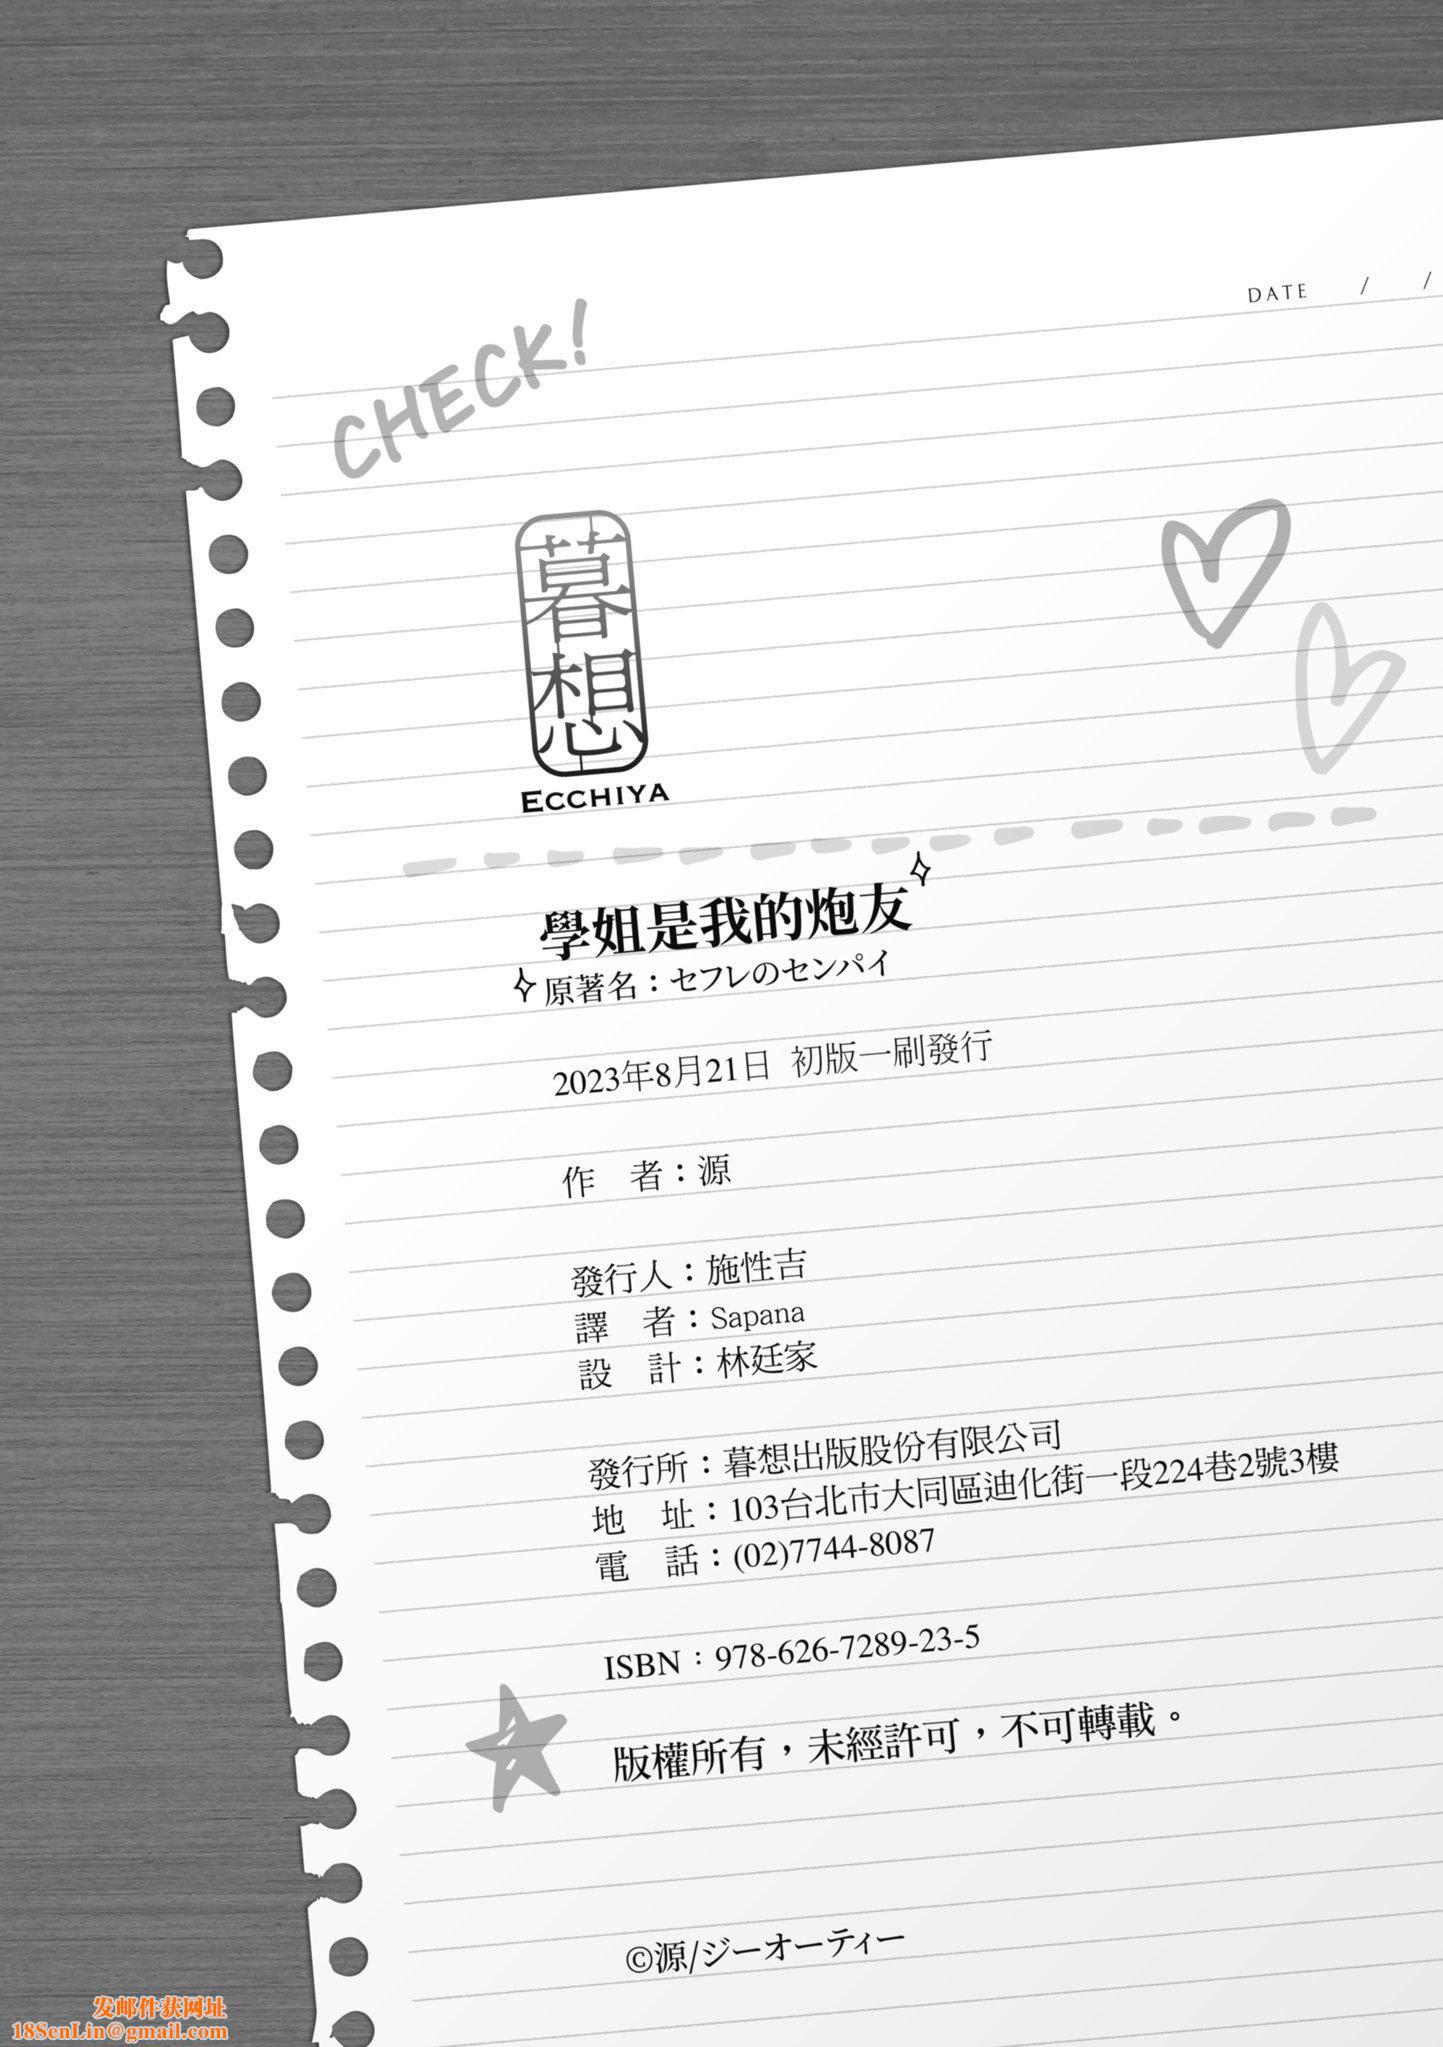 DATE / /
CHECK!
暮想
ECCHIYA
學姐是我的炮友
原著名：セフレのセンパイ
2023年8月21日 初版一刷發行
作　者：源
發行人：施性吉
譯　者：Sapana
設　計：林廷家
發行所：暮想出版股份有限公司
地　址：103台北市大同區迪化街一段224巷2號3樓
電　話：(02)7744-8087
ISBN：978-626-7289-23-5
版權所有，未經許可，不可轉載。
©源/ジーオーティー
发邮件获网址
18SenLin@gmail.com